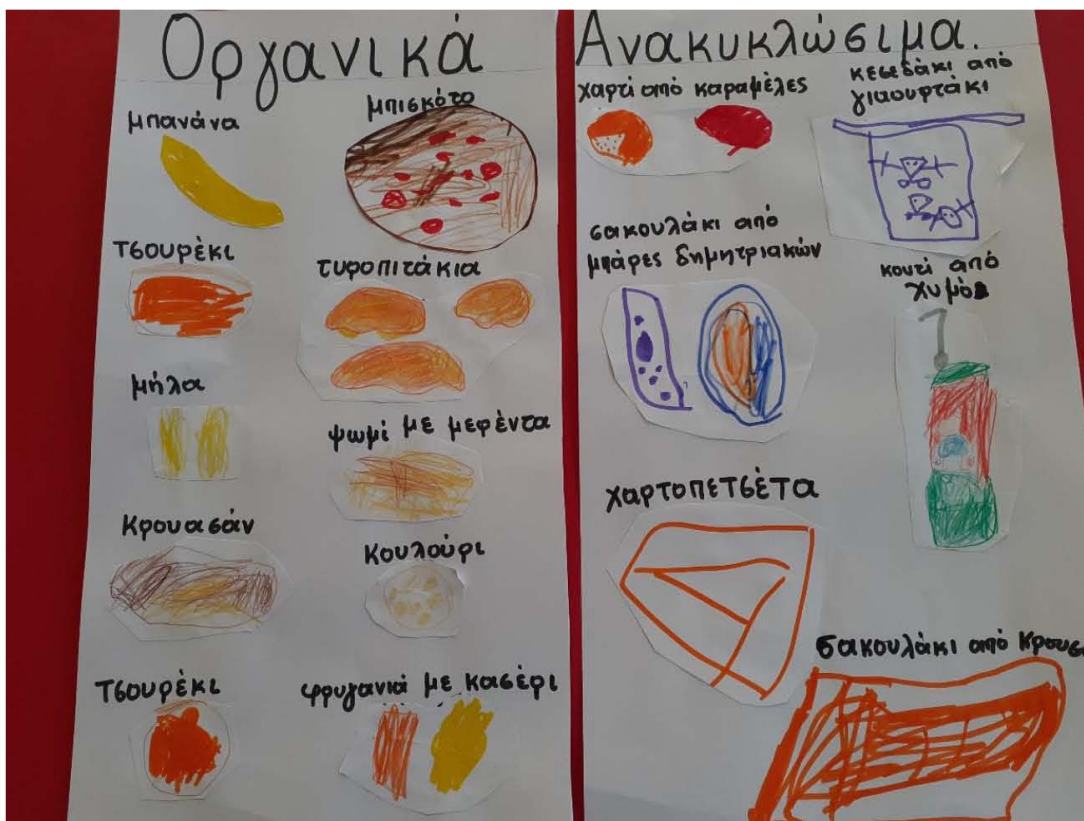 Οργανικά
μπανάνα
μπισκότο
τσουρέκι
τυροπιτάκια
μήλα
ψωμί με μερέντα
κρουασάν
κουλούρι
τσουρέκι
φρυγανιά με κασέρι
Ανακυκλώσιμα.
χαρτί από καραμέλες
κεσεδάκι από
γιαουρτάκι
σακουλάκι από
μπάρες δημητριακών
κουτί από
χυμό
χαρτοπετσέτα
σακουλάκι από κρουσ